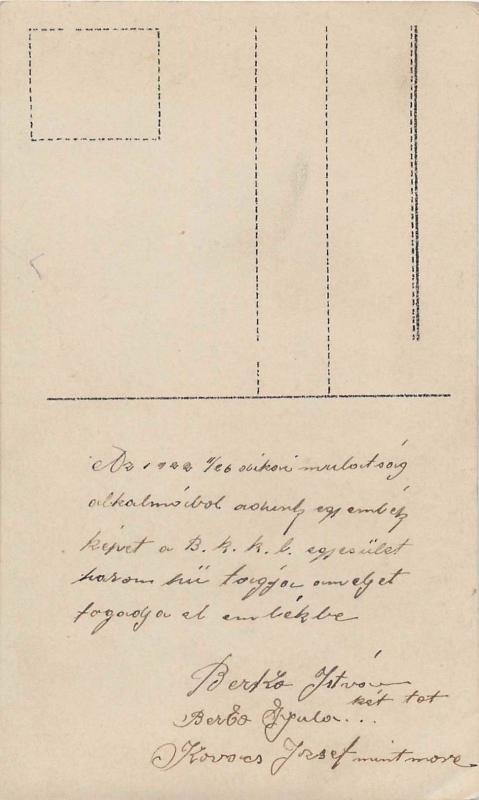 Az 1922 II/26 diikai mulatság
alkalmábol adunk egy emlék
képet a B. k. k. l. egyesület
három hű tagjа amelyet
fogadja el emlékbe
Berkó István
két tot
Berkó Gyula...
Kovács József mint more